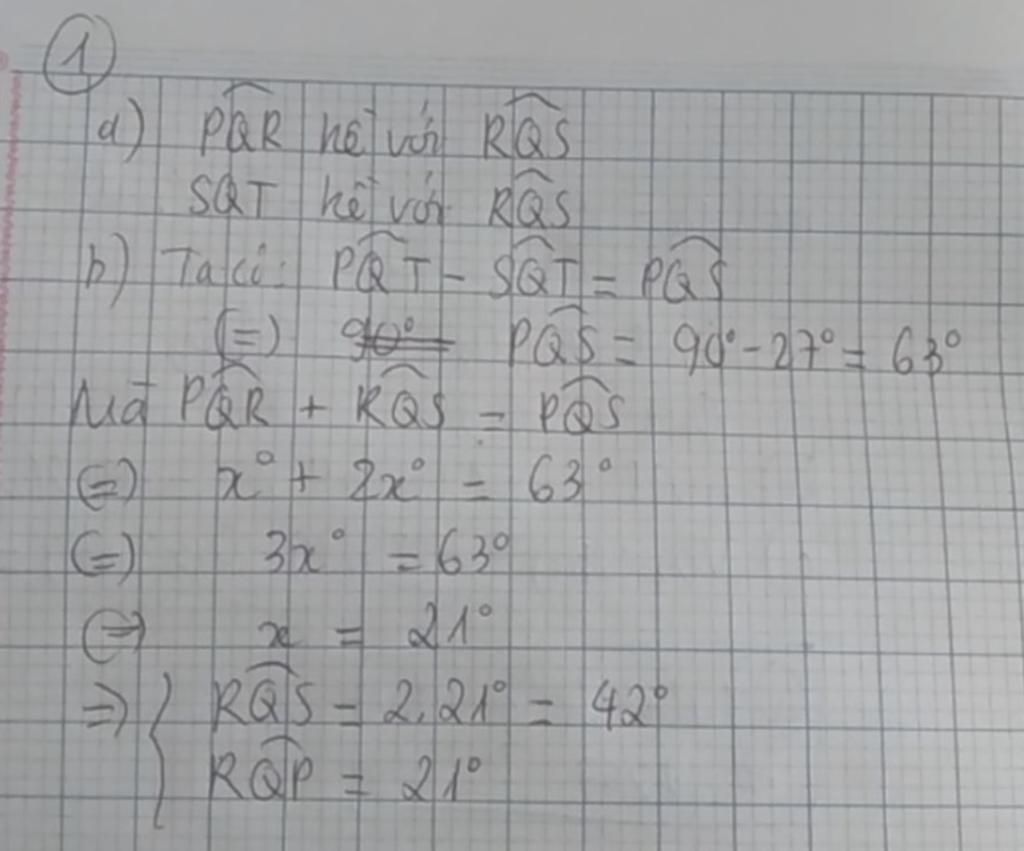 1
a) PQR kề với RQS
SQT kề với RQS
b) Ta có: PQT - SQT = PQS
(=) 90° = PQS = 90° - 27° = 63°
Mà PQR + RQS = PQS
(=) x° + 2x° = 63°
(=) 3x° = 63°
(=) x = 21°
=> { RQS = 2.21° = 42°
RQP = 21°